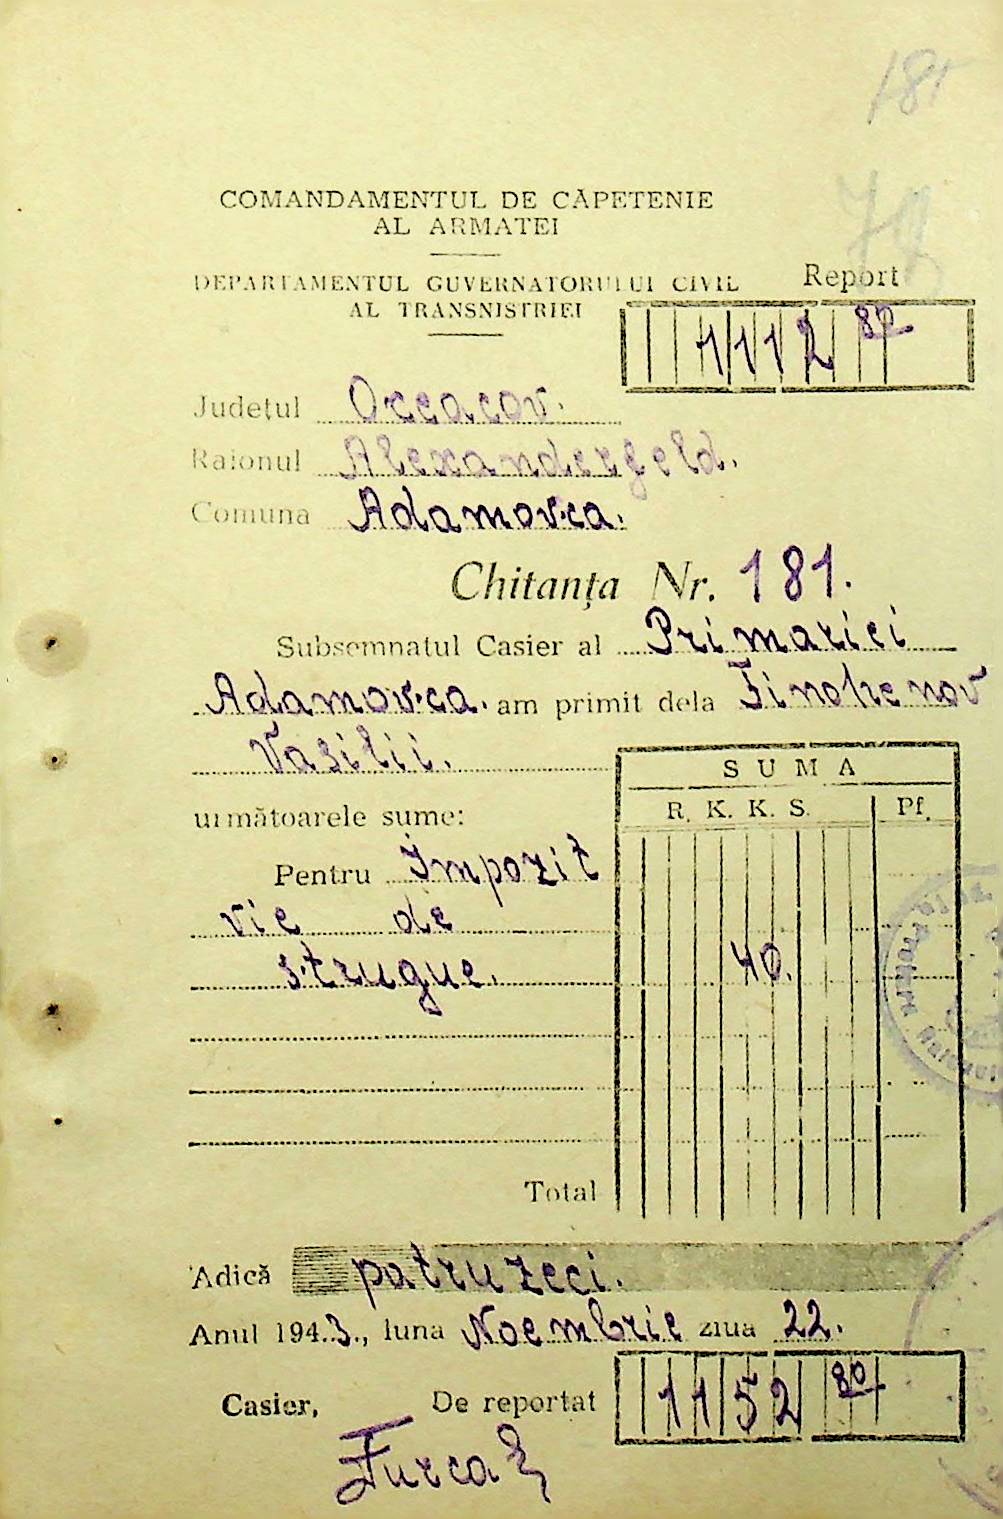 181
79
COMANDAMENTUL DE CĂPETENIE
AL ARMATEI
DEPARTAMENTUL GUVERNATORULUI CIVIL
AL TRANSNISTRIEI
Report
1112 80
Județul Oceacov.
Raionul Alexanderfeld.
Comuna Adamovca.
Chitanța Nr. 181.
Subsemnatul Casier al Primariei
Adamovca. am primit dela Tinohenov
Vasilii.
SUMA
R. K. K. S. Pf.
următoarele sume:
Pentru Impozit
vie de
strugue. 40.
Total
Adică patruzeci.
Anul 1943., luna Noembrie ziua 22.
Casier, De reportat 1152 80